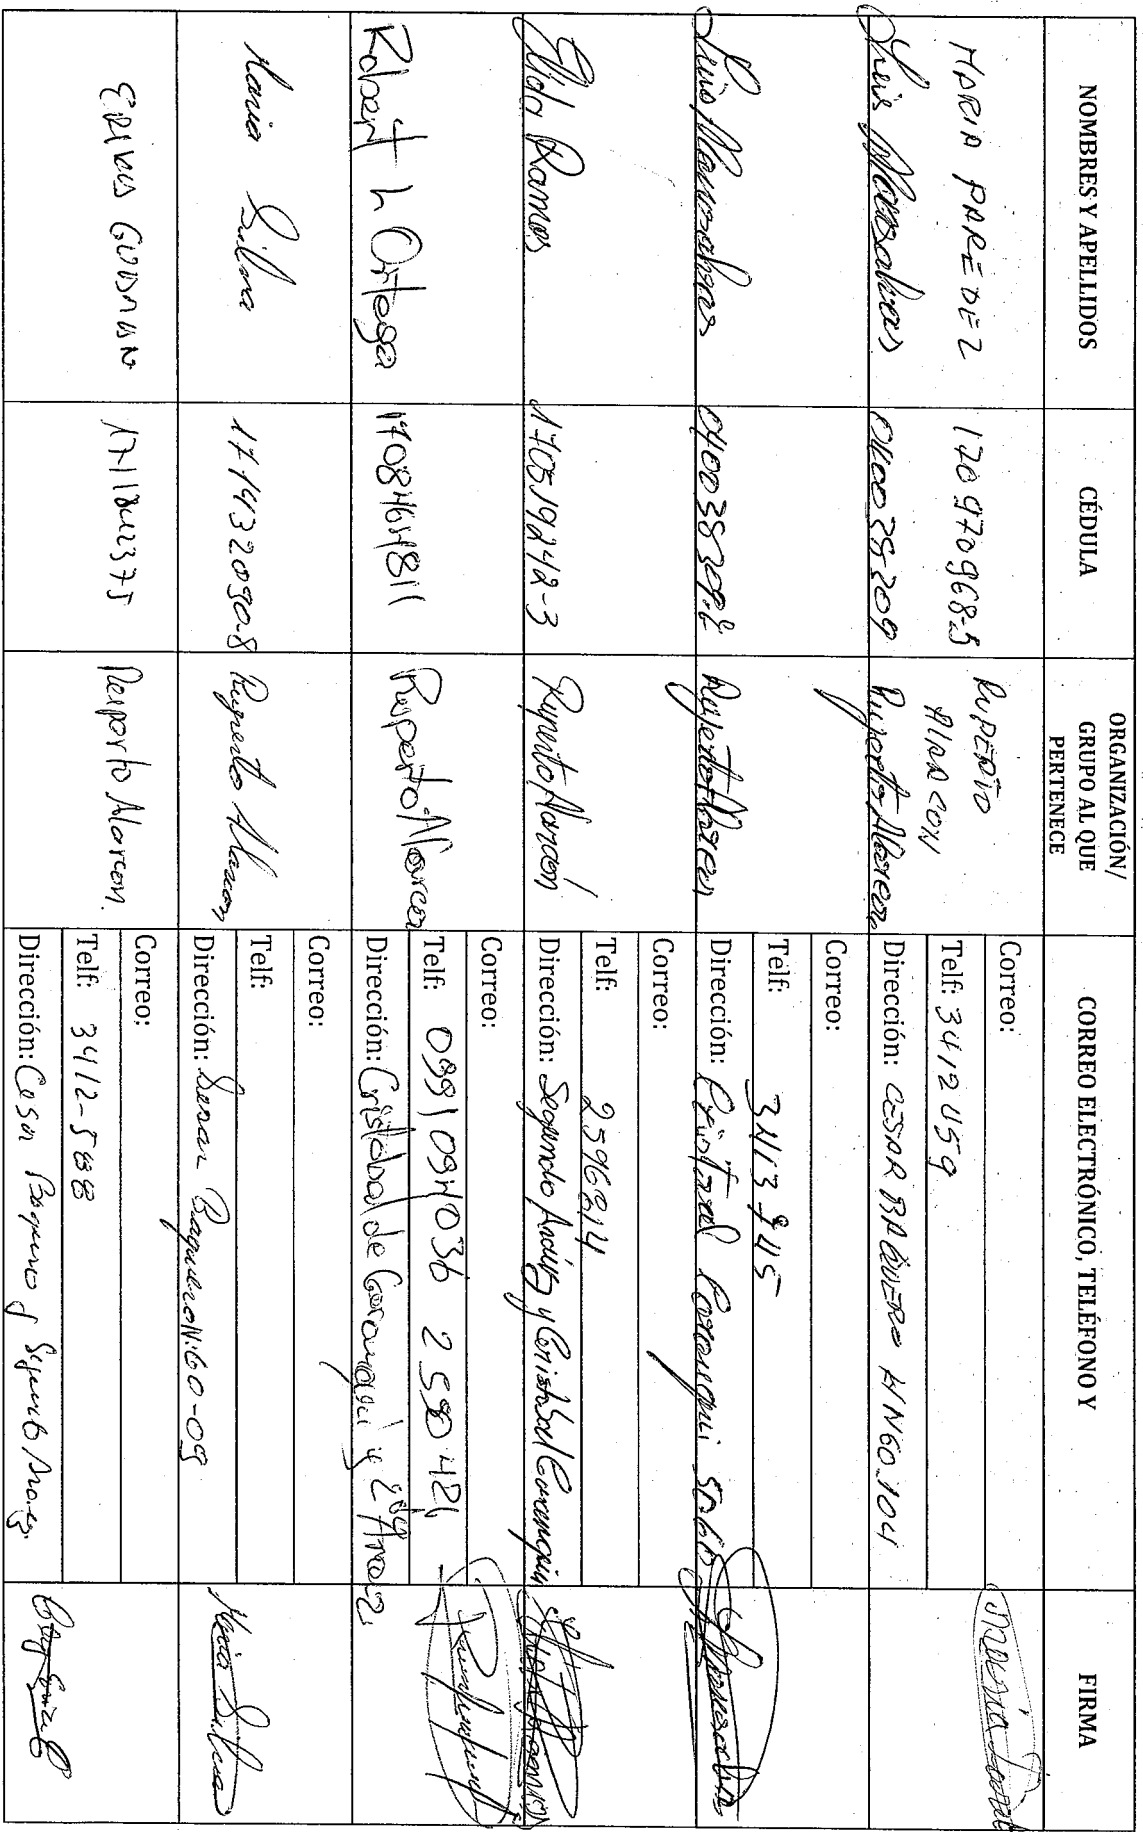 NOMBRES Y APELLIDOS
CÉDULA
ORGANIZACIÓN/
GRUPO AL QUE
PERTENECE
CORREO ELECTRÓNICO, TELÉFONO Y
FIRMA
MARIA PAREDEZ
170970968-5
RUPERTO
ALARCON
Correo:
Telf: 3412459
Dirección: CESAR BAQUERO #N60.104
Luis
0400385209
Ruperto Alarcon
Correo:
Telf: 3413745
Dirección: Cristobal Caranqui
Luis
Ruperto Alarcon
Correo:
Telf: 2596214
Dirección: Segundo Araúz y Cristobal Caranqui
Elida Ramos
170519242-3
Ruperto Alarcón
Correo:
Telf: 0991094036 2590421
Dirección: Cristobal de Caranqui y 2do Arauz
Robert h Ortega
1708464811
Ruperto Alarcon
Correo:
Telf:
Dirección: Sesar Baquero N:60-09
Maria Silva
171432090-8
Ruperto Alarcon
Maria Silva
Correo:
Telf: 3412-588
Dirección: Cesar Baquero y Segundo Arauz.
Ruperto Alarcon.